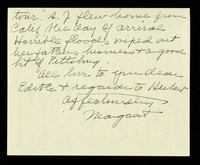 tour. A. J. flew home from
Calif the day of arrival
Horrible floods wiped out
her fathers business & a good
bit of Pittsburg.
All love to you dear
Edith & regards to Huber
affectionately
Margaret